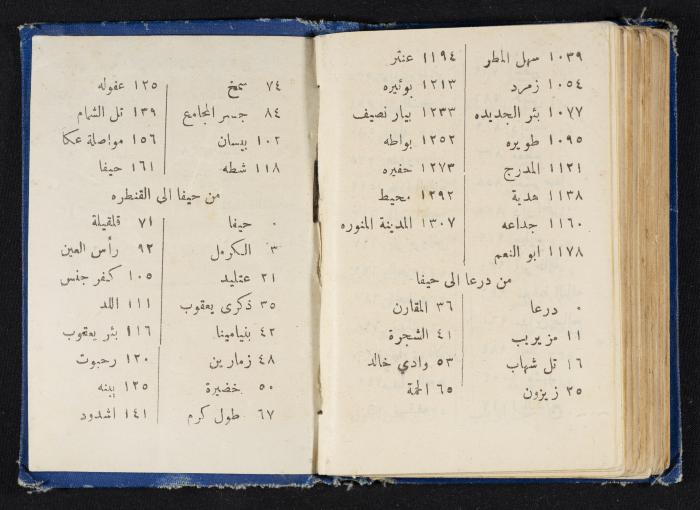 ١٠٣٩ سهل المطر
١٠٥٤ زمرد
١٠٧٧ بئر الجديده
١٠٩٥ طويره
١١٢١ المدرج
١١٣٨ هدية
١١٦٠ جداعه
١١٧٨ ابو النعم
١١٩٤ عنتر
١٢١٣ بوئيره
١٢٣٣ بيار نصيف
١٢٥٢ بواطه
١٢٧٣ حفيره
١٢٩٢ محيط
١٣٠٧ المدينة المنوره
من درعا الى حيفا
٠ درعا
١١ مزيريب
١٦ تل شهاب
٢٥ زيزون
٣٦ المقارن
٤١ الشجرة
٥٣ وادي خالد
٦٥ الحمة
٧٤ سمخ
٨٤ جسر المجامع
١٠٢ بيسان
١١٨ شطه
١٢٥ عفوله
١٣٩ تل الشمام
١٥٦ مواصلة عكا
١٦١ حيفا
من حيفا الى القنطره
٠ حيفا
٣ الكرمل
٢١ عتليد
٣٥ ذكرى يعقوب
٤٢ بنيامينا
٤٨ زمارين
٥٠ خضيرة
٦٧ طول كرم
٧١ قلقيلة
٩٢ رأس العين
١٠٥ كفر جنس
١١١ اللد
١١٦ بئر يعقوب
١٢٠ رحبوت
١٢٥ يبنه
١٤١ اشدود